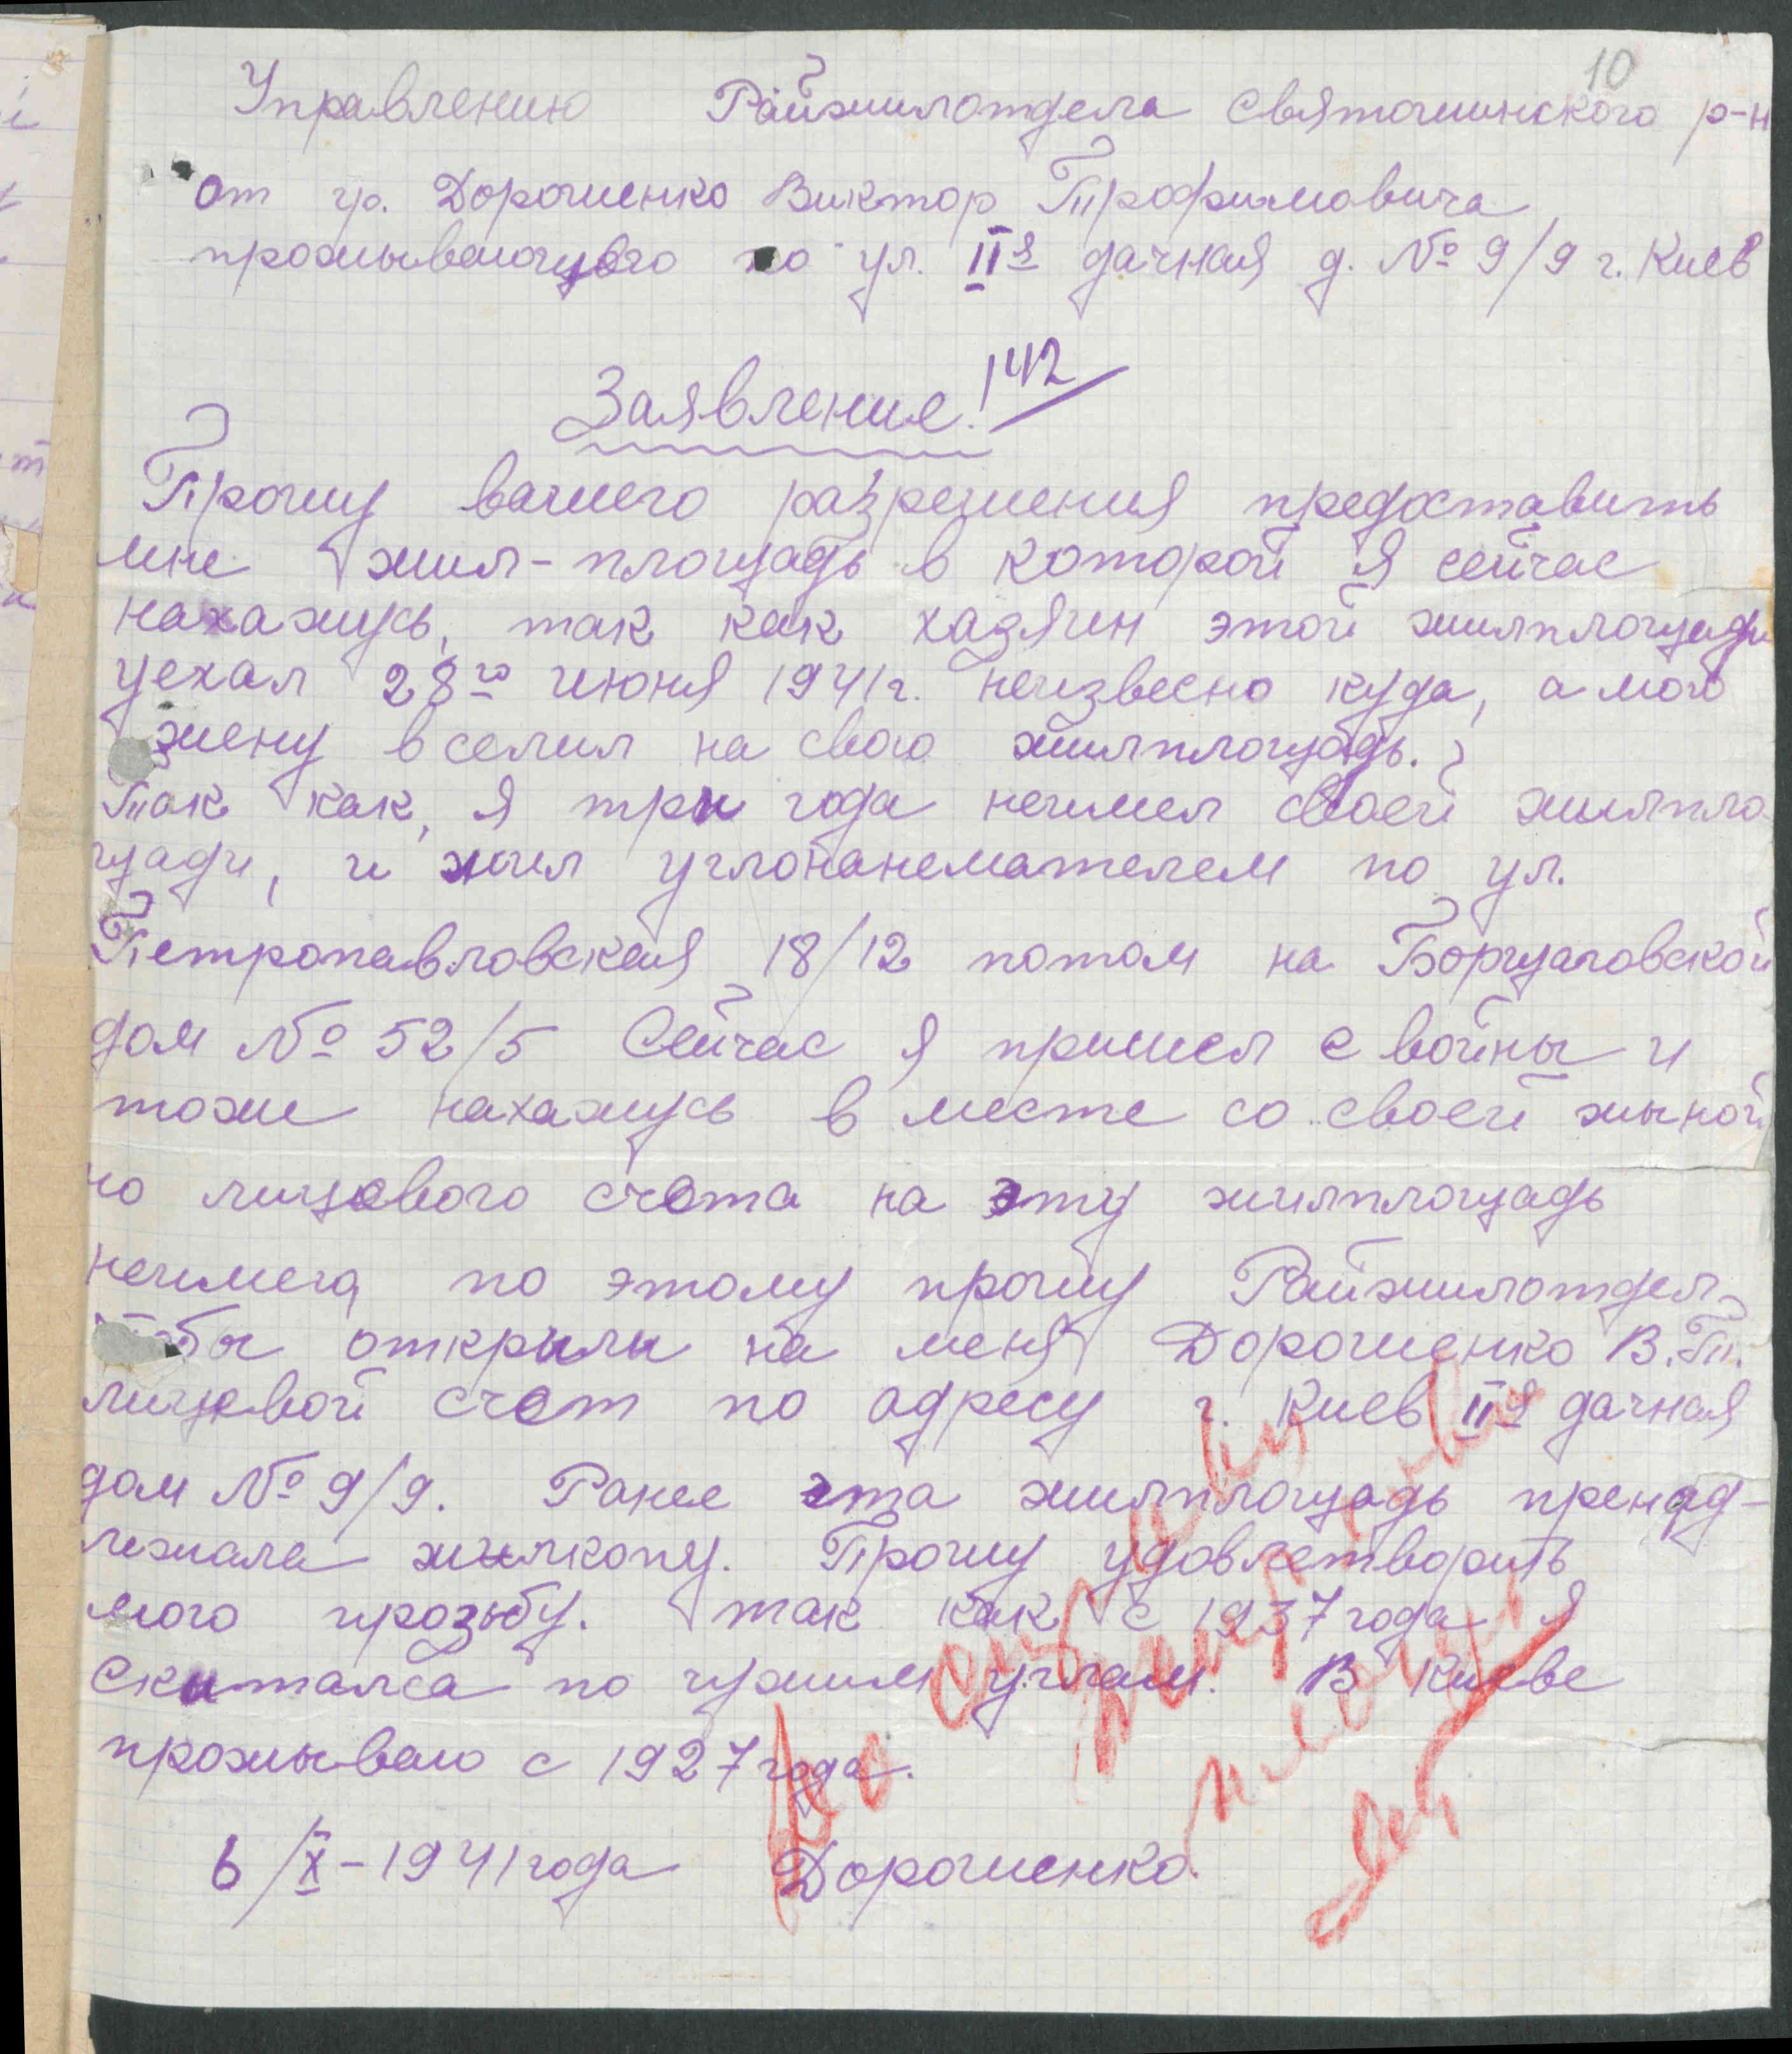 10
Управлению Райжилотдела Святошинского р-н
от гр. Дорошенко Виктор Трофимовича
проживающего по ул. II я дачная д. № 9/9 г. Киев
Заявление! 142
Прошу вашего разрешения предоставить
мне жил-площадь в которой я сейчас
нахажусь, так как хазяин этой жилплощади
уехал 28го июня 1941г. неизвесно куда, а мою
жену вселил на свою жилплощадь.
Так как, я три года неимел своей жилпло-
щади, и жил углонанемателем по ул.
Петропавловская 18/12 потом на Борщаговской
дом № 52/5 Сейчас я пришел с войны и
тоже нахажусь в месте со своей жыной
но лицевого счета на эту жилплощадь
неимею, по этому прошу Райжилотдел
бы открыли на меня Дорошенко В.Т.
лицевой счет по адресу г. Киев II я дачная
дом № 9/9. Ранее эта жилплощадь пренад-
лежала жилкопу. Прошу удовлетворить
мою прозьбу. так как с 1937 года я
скитался по чужим углам. В Киеве
проживаю с 1927 года.
6/X-1941 года Дорошенко